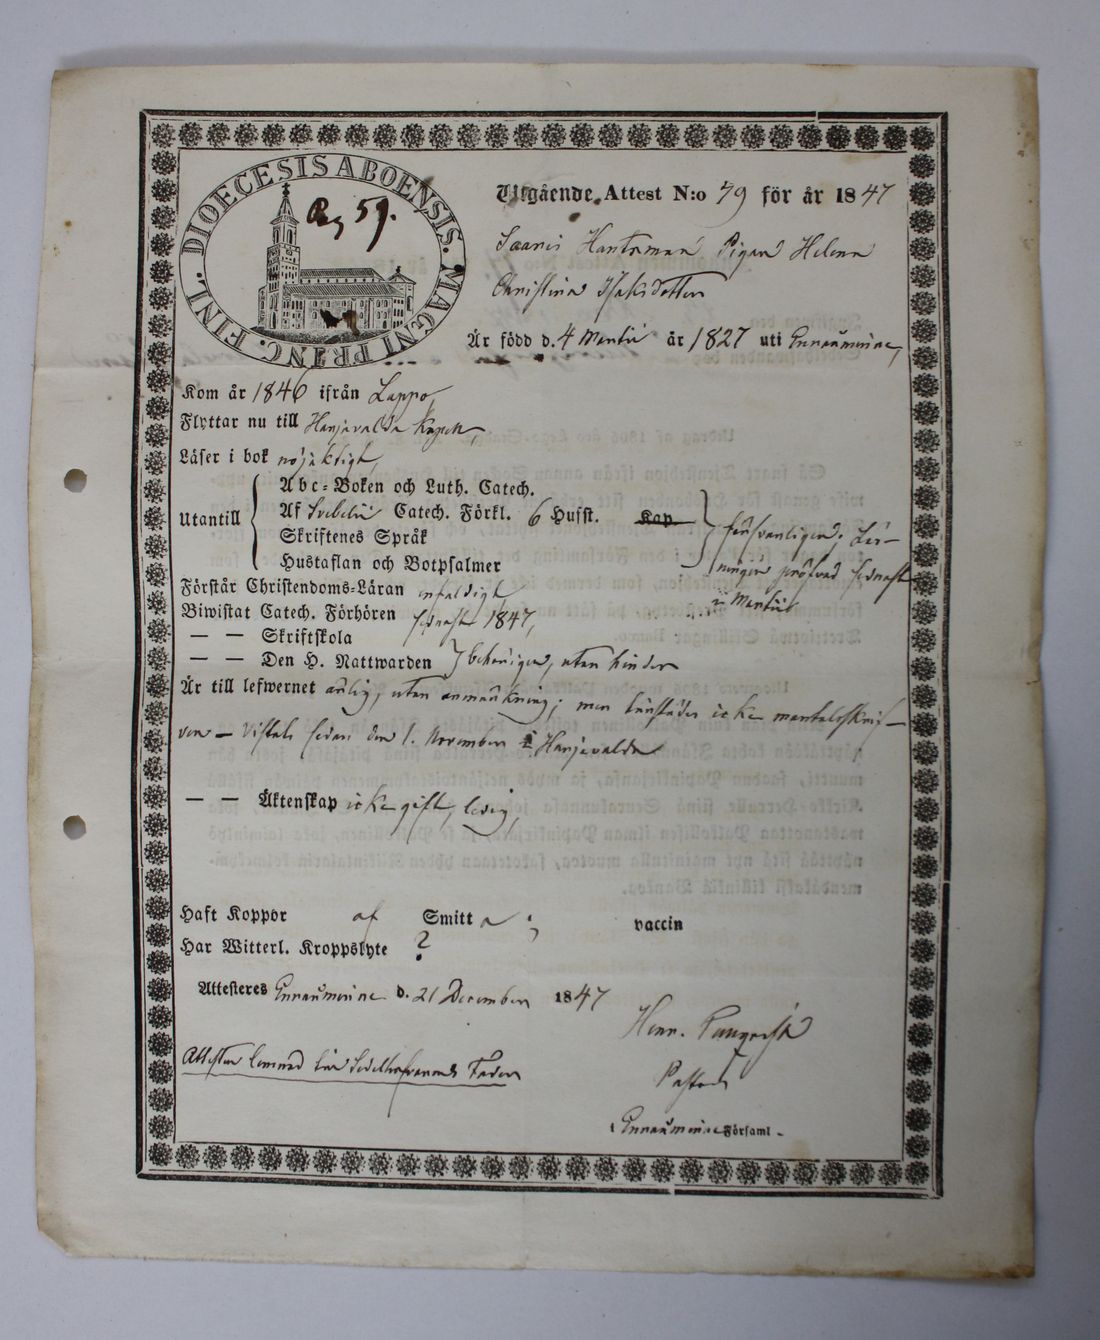 DIOECESIS ABOENSIS. MAGNI PRINC. FINL.
Pag 59.
Utgående Attest N:o 79 för år 1847
Hantsman Pigan Helena
Christina Isaksdotter
Är född d. 4 Martii år 1827 uti Eurauminne,
Kom år 1846 ifrån Lappo,
Flyttar nu till Harjavalda Kapell,
Läser i bok nöjaktigt,
Utantill
Abc-Boken och Luth. Catech.
Af Svebelii Catech. Förkl. 6 Hufst. Kap
Skriftenes Språk
Hustaflan och Botpsalmer
försvarligen. Läs-
ningen pröfvad sednast
i Martii
Förstår Christendoms-Läran enfaldigt
Biwistat Catech. Förhören sednast 1847,
— — Skriftskola
— — Den H. Nattwarden behörigen, utan hinder
Är till lefwernet ärlig, utan anmärkning; men härstädes icke mantalsskrif-
ven — Vistats sedan den 1. November i Harjavalda
— — Äktenskap icke gift, ledig,
Haft Koppor af Smitta; vaccin
Har Witterl. Kroppslyte ?
Attesteres Eurauminne d. 21 December 1847
Henr.
Pastor
Attesten lemnad åt Fader
i Eurauminne Församl.